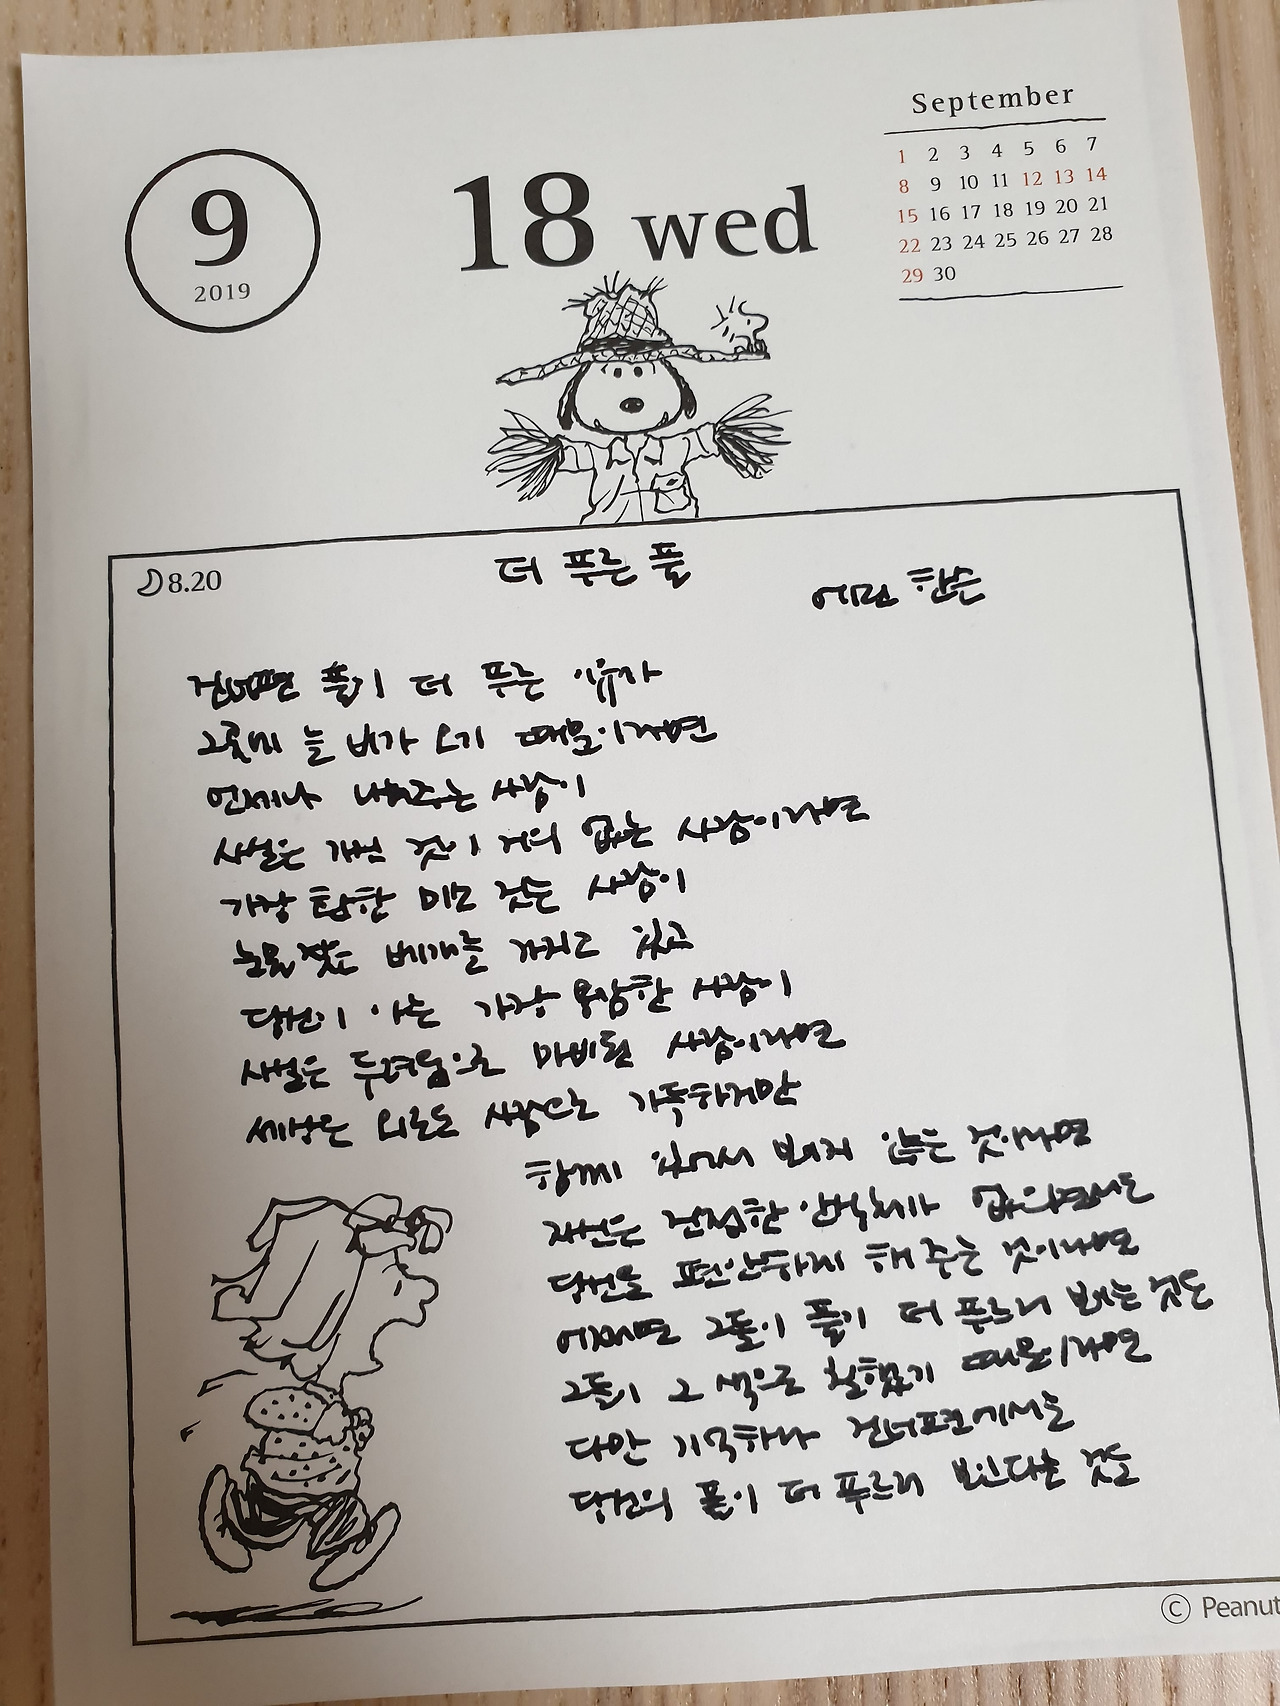 September
1 2 3 4 5 6 7
8 9 10 11 12 13 14
15 16 17 18 19 20 21
22 23 24 25 26 27 28
29 30
9
2019
18 wed
8.20
더 푸른 풀
에린 핸슨
건너편 풀이 더 푸른 이유가
그곳에 늘 비가 오기 때문이라면
언제나 나눠주는 사람이
사실은 가진 것이 거의 없는 사람이라면
가장 환한 미소 짓는 사람이
눈물 젖은 베개를 가지고 있고
당신이 아는 가장 용감한 사람이
사실은 두려움으로 마비된 사람이라면
세상은 외로운 사람들로 가득하지만
함께 있어서 보이지 않는 것이라면
자신은 진정한 안식처가 없으면서도
당신을 편안하게 해 주는 것이라면
어쩌면 그들의 풀이 더 푸르러 보이는 것은
그들이 그 색으로 칠했기 때문이라면
다만 기억하라 건너편에서는
당신의 풀이 더 푸르러 보인다는 것을
© Peanut